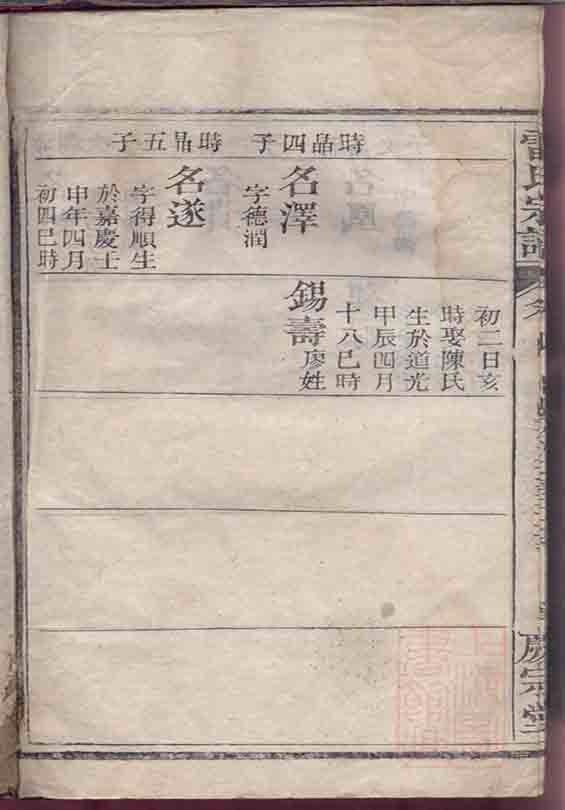 氏宗譜
慶宗堂
時晶四子
時晶五子
名澤
字德潤
名遂
字得順生
於嘉慶壬
申年四月
初四巳時
初二日亥
時娶陳氏
生於道光
甲辰四月
十八巳時
錫壽廖姓